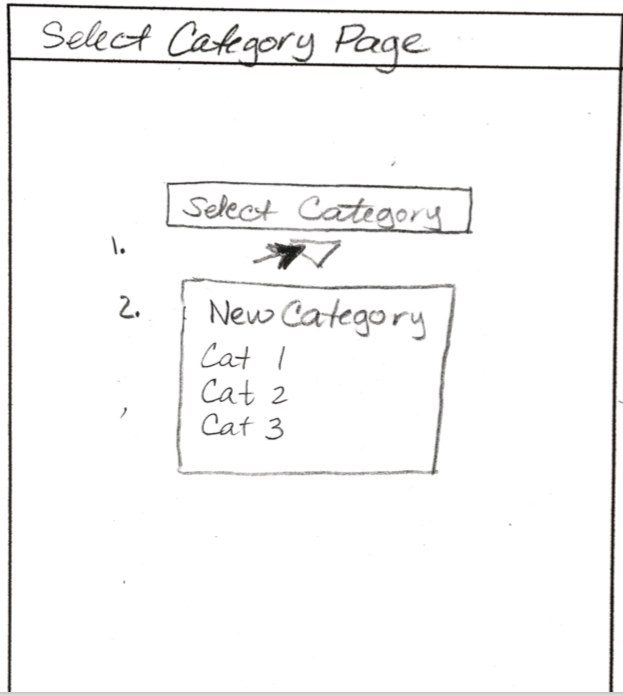 Select Category Page
Select Category
1.
2.
New Category
Cat 1
Cat 2
Cat 3